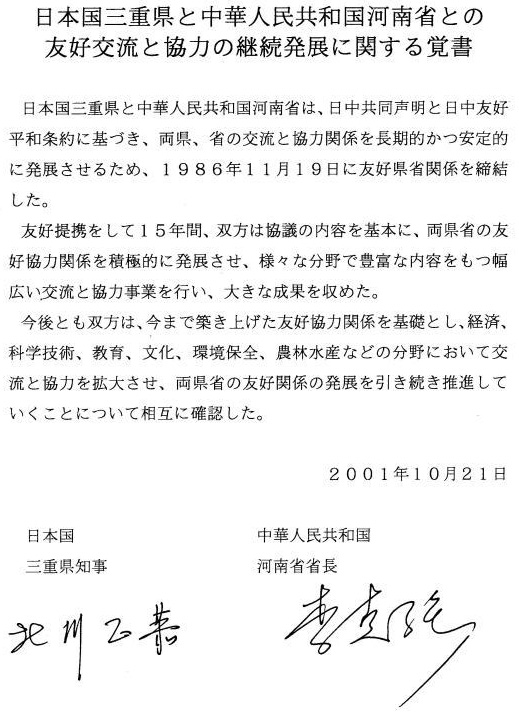 日本国三重県と中華人民共和国河南省との
友好交流と協力の継続発展に関する覚書
日本国三重県と中華人民共和国河南省は、日中共同声明と日中友好
平和条約に基づき、両県、省の交流と協力関係を長期的かつ安定的
に発展させるため、１９８６年１１月１９日に友好県省関係を締結
した。
友好提携をして１５年間、双方は協議の内容を基本に、両県省の友
好協力関係を積極的に発展させ、様々な分野で豊富な内容をもつ幅
広い交流と協力事業を行い、大きな成果を収めた。
今後とも双方は、今まで築き上げた友好協力関係を基礎とし、経済、
科学技術、教育、文化、環境保全、農林水産などの分野において交
流と協力を拡大させ、両県省の友好関係の発展を引き続き推進して
いくことについて相互に確認した。
２００１年１０月２１日
日本国
三重県知事
北川正恭
中華人民共和国
河南省省長
李克强